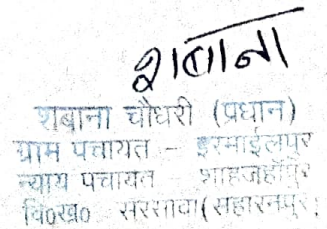 शबाना
शबाना चौधरी (प्रधान)
ग्राम पंचायत - इस्माईलपुर
न्याय पंचायत शाहजहाँपुर
वि०ख० सरसावा (सहारनपुर)